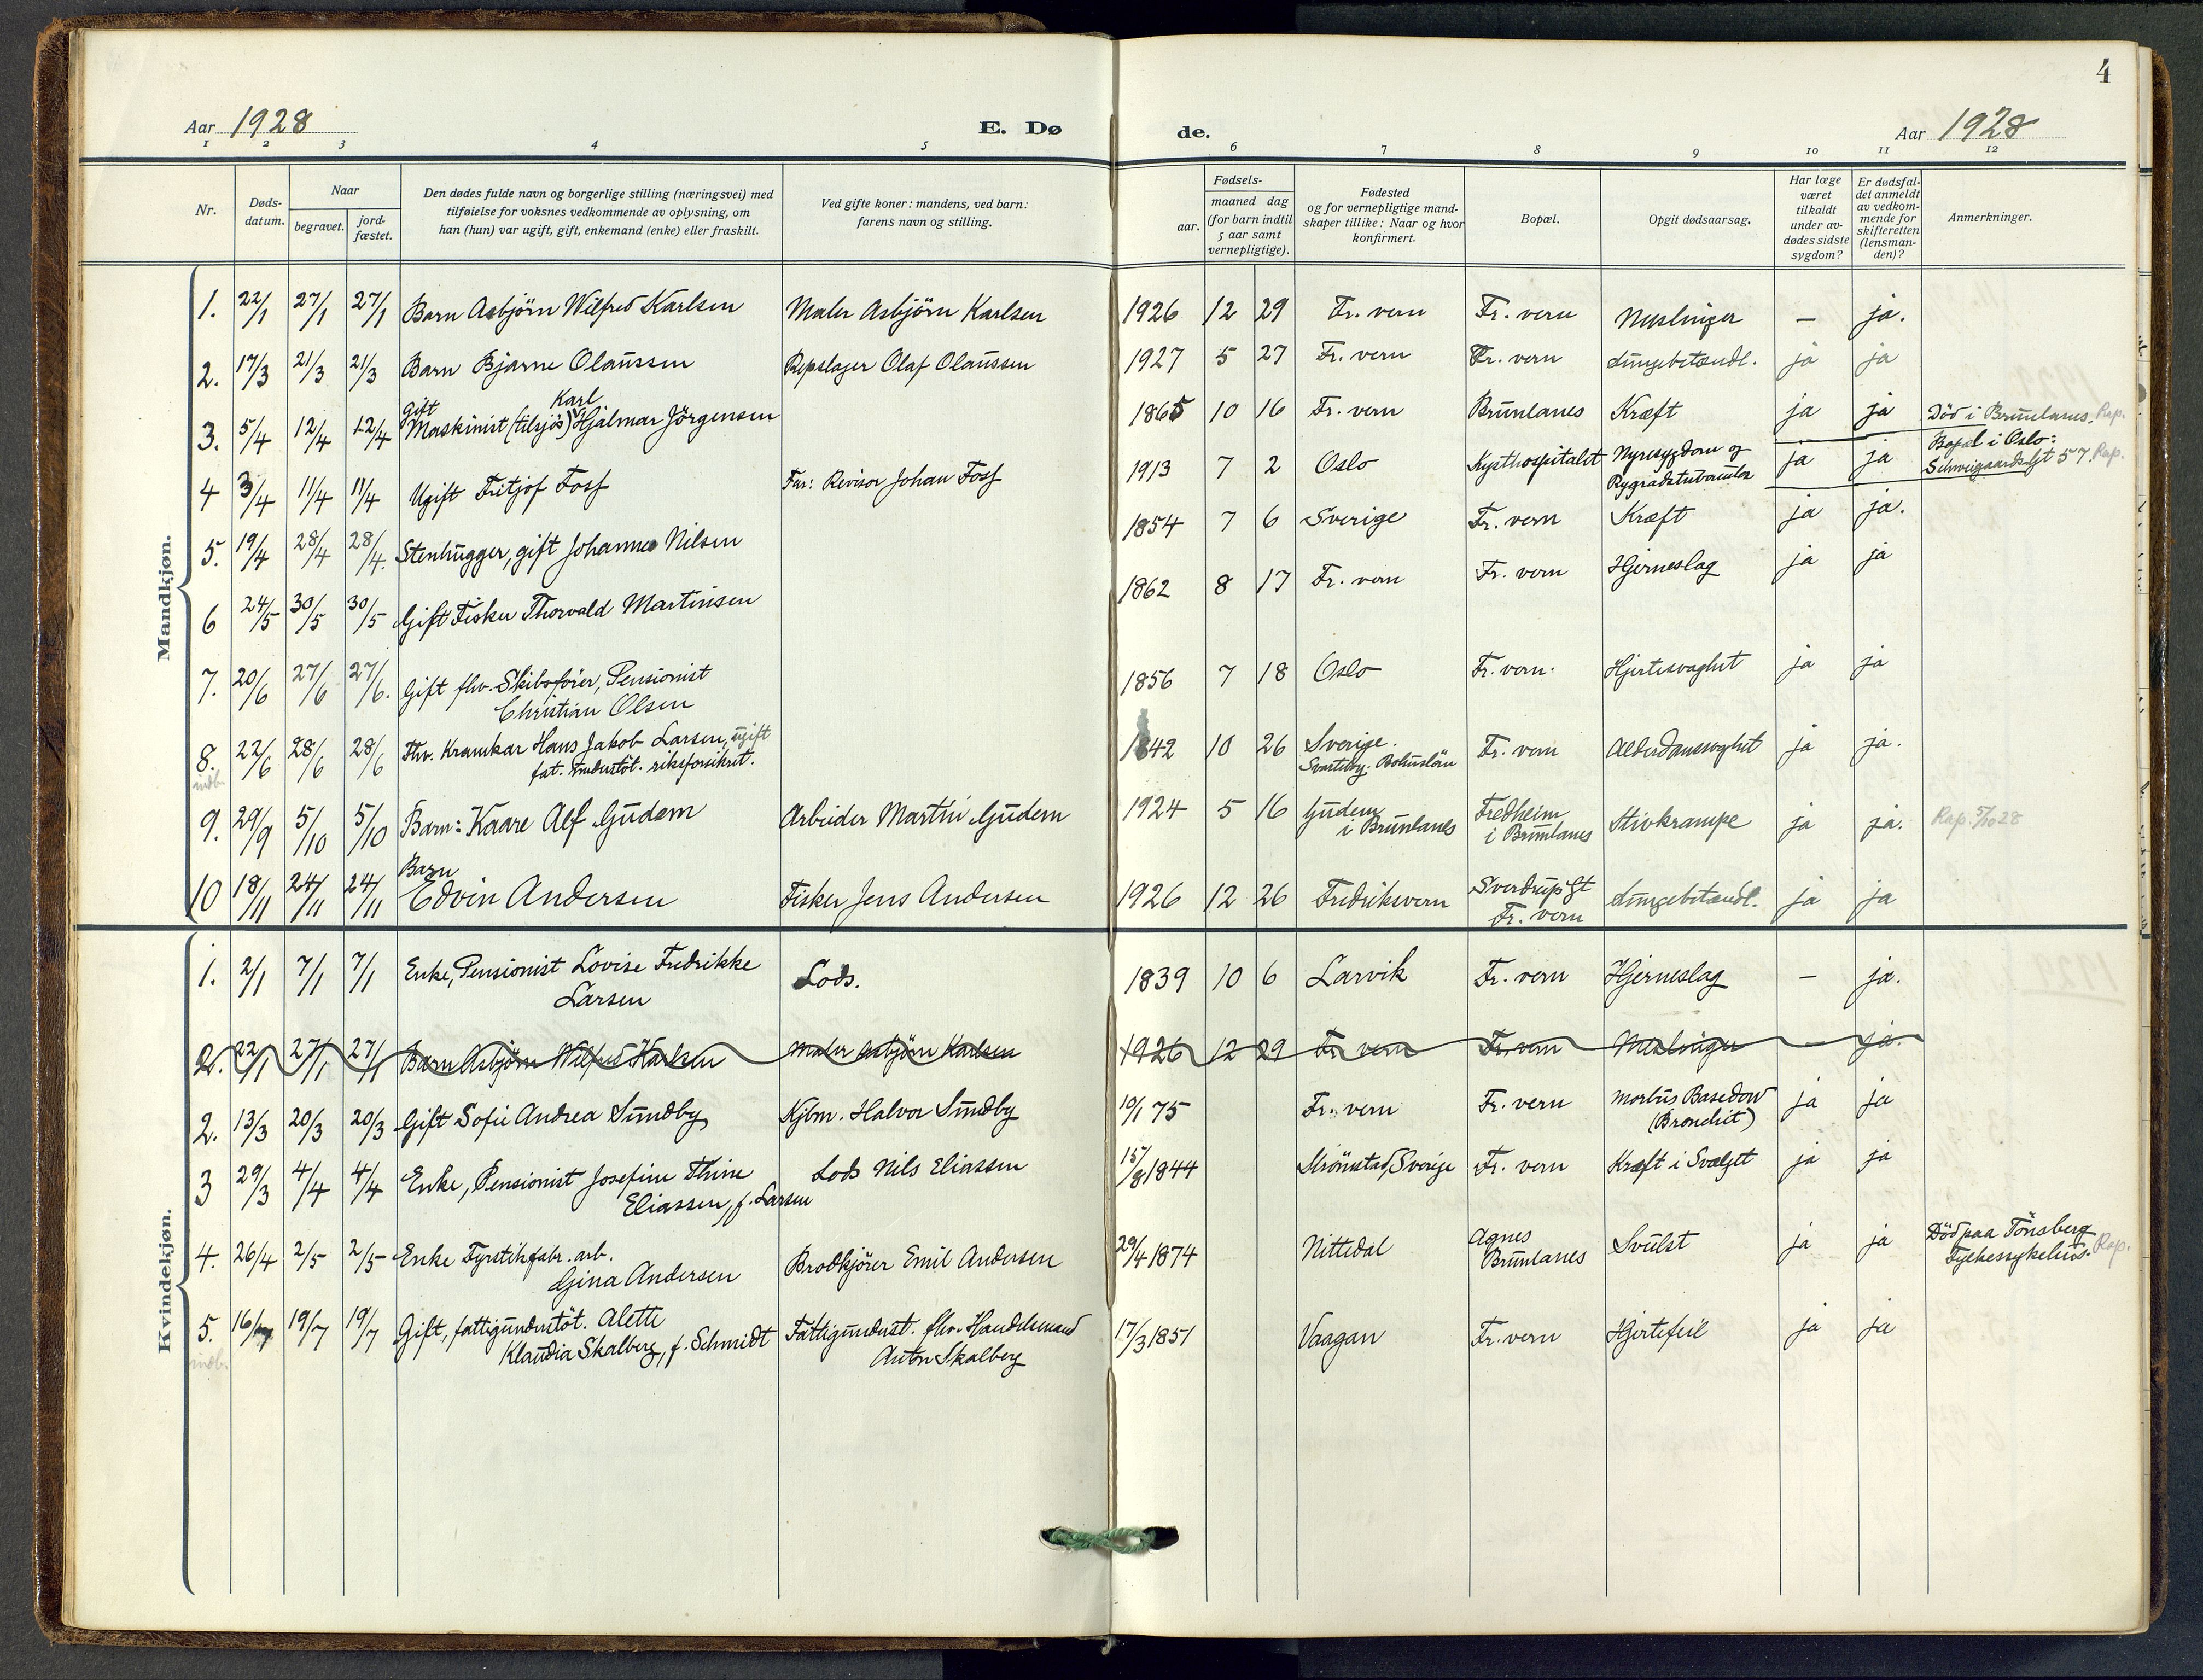 4
Aar 1928
E. Døde.
Aar 1928
1 2 3 4 5 6 7 8 9 10 11 12
Nr.
Døds-
datum.
Naar
begravet.
jord-
fæstet.
Den dødes fulde navn og borgerlige stilling (næringsvei) med
tilføielse for voksnes vedkommende av oplysning, om
han (hun) var ugift, gift, enkemand (enke) eller fraskilt.
Ved gifte koner: mandens, ved barn:
farens navn og stilling.
Fødsels-
aar.
maaned dag
(for barn indtil
5 aar samt
vernepligtige).
Fødested
og for vernepligtige mand-
skaper tillike: Naar og hvor
konfirmert.
Bopæl.
Opgit dødsaarsag.
Har læge
været
tilkaldt
under av-
dødes sidste
sygdom?
Er dødsfal-
det anmeldt
av vedkom-
mende for
skifteretten
(lensman-
den)?
Anmerkninger.
Mandkjøn.
1. 22/1 27/1 27/1 Barn Asbjörn Wilfred Karlsen Maler Asbjörn Karlsen 1926 12 29 Fr. vern Fr. vern Meslinger — ja.
2. 17/3 21/3 21/3 Barn Bjarne Olaussen Repslager Olaf Olaussen 1927 5 27 Fr. vern Fr. vern Lungebetændl. ja ja
Gift Karl
3. 5/4 12/4 12/4 Maskinist (tilsjös) Hjalmar Jörgensen 1865 10 16 Fr. vern Brunlanes Kræft ja ja Död i Brunlanes. Rap.
4 3/4 11/4 11/4 Ugift Fritjof Foss Far: Revisor Johan Foss 1913 7 2 Oslo Kysthospitalet Nyresygdom og ja ja Bopæl i Oslo:
Rygradstuberculos Schweigaardsgt 57. Rap.
5. 19/4 28/4 28/4. Stenhugger, gift Johannes Nilsen 1854 7 6 Sverige Fr. vern Kræft ja ja.
6 24/5 30/5 30/5 Gift Fisker Thorvald Martinsen 1862 8 17 Fr. vern Fr. vern Hjerneslag ja ja
7. 20/6 27/6 27/6. Gift fhv. Skibsförer, Pensionist 1856 7 18 Oslo Fr. vern. Hjertesvaghet ja ja
Christian Olsen
8. 22/6 28/6 28/6 Fhv. Kramkar Hans Jakob Larsen, ugift 1842 10 26 Sverige. Fr. vern Alderdomssvaghet ja ja.
indb. fat. understöt. riksforsikret. Svarteby. Bohuslän
9. 29/9 5/10 5/10 Barn: Kaare Alf Gudem Arbeider Martin Gudem 1924 5 16 Gudem Fredheim Stivkrampe ja ja. Rap. 5/10 28
i Brunlanes i Brunlanes
Barn
10 18/11 24/11 24/11 Edvin Andersen Fisker Jens Andersen 1926 12 26 Fredriksvern Sverdrups gt Lungebetændl. ja ja
Fr. vern
Kvindekjøn.
1. 2/1 7/1 7/1 Enke, Pensionist Lovise Fredrikke Lods. 1839 10 6 Larvik Fr. vern Hjerneslag — ja.
Larsen
2. 22/1 27/1 27/1 Barn Asbjörn Wilfred Karlsen Maler Asbjörn Karlsen 1926 12 29 Fr vern Fr. vern Meslinger — ja.
2. 13/3 20/3 20/3 Gift Sofie Andrea Sundby Kjbm. Halvor Sundby 10/1 75 Fr. vern Fr. vern Morbus Basedow ja ja
(Bronchit)
3 29/3 4/4 4/4 Enke, Pensionist Josefine Thine Lods Nils Eliassen 15/8 1844 Strömstad, Sverige Fr. vern Kræft i Svælget ja ja
Eliassen, f. Larsen
4. 26/4 2/5 2/5 Enke Fyrstikfabr. arb. Brodkjörer Emil Andersen 29/4 1874 Nittedal Agnes Svulst ja ja Död paa Tönsberg
Gina Andersen Brunlanes Fylkessykehus. Rap.
5. 16/7 19/7 19/7 Gift, fattigunderstöt. Alette Fattigunderst. fhv. Handelsmand 17/3 1851 Vaagan Fr. vern Hjertefeil ja ja
indb. Klaudia Skalberg, f. Schmidt Anton Skalberg